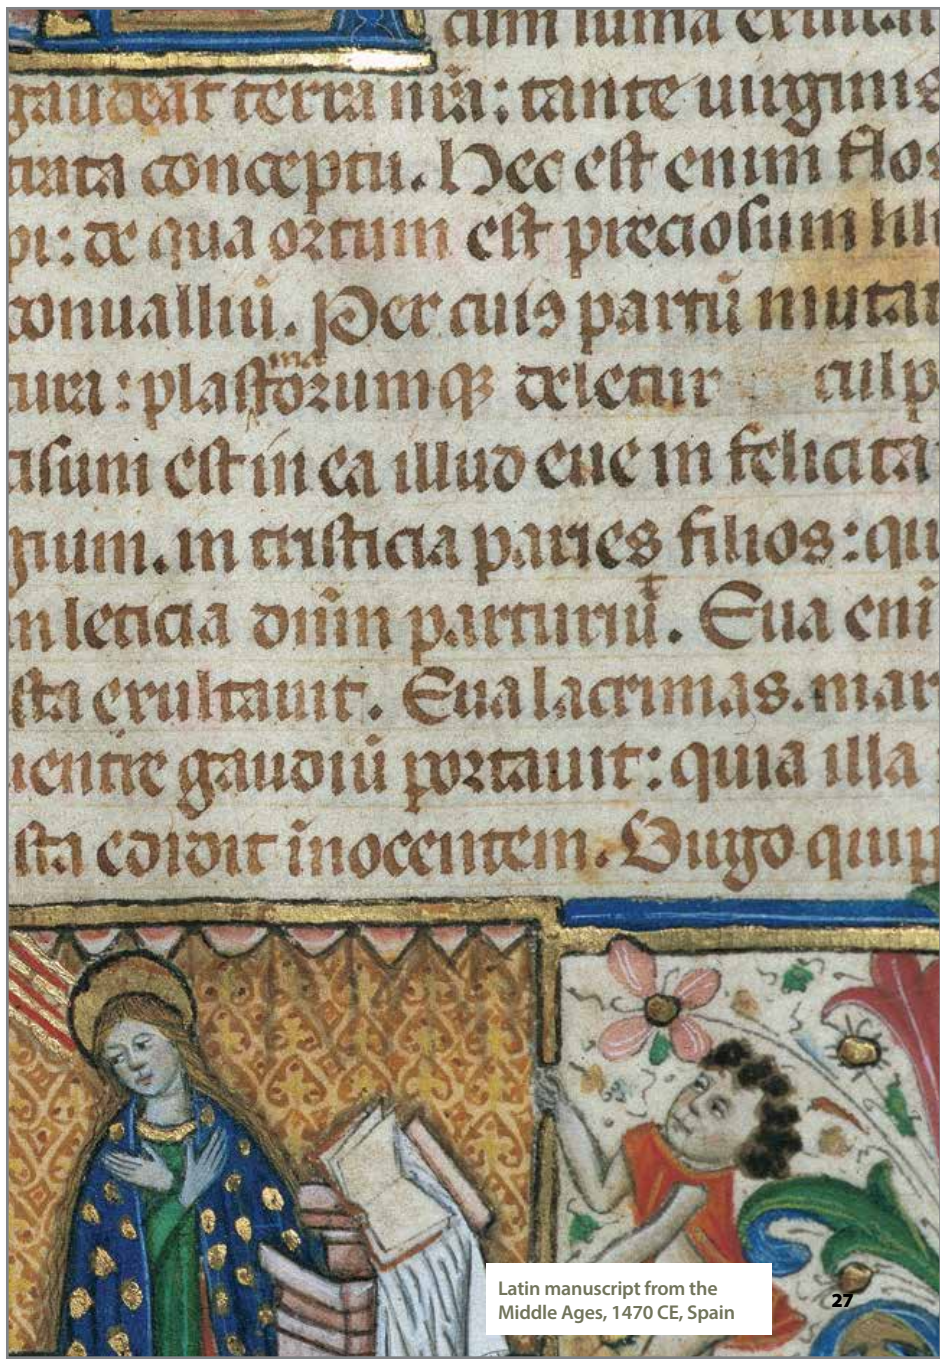 cum
gaudeat terra nr̃a: tante uirginis
conceptu. Hec est enim flos
pi: de qua ortum est preciosum lili
conualliũ. Per cuiꝰ partũ mutat
tura: plastorumqꝫ deletur culp
ma
est in ea illud eue in felicita
gium. in tristicia paries filios: qu
in leticia dñm parturiũt. Eua eni
sta exultauit. Eua lacrimas. mar
uentre gaudiũ portauit: quia illa
sta edidit inocentem. Uirgo quip
Latin manuscript from the
Middle Ages, 1470 CE, Spain
27